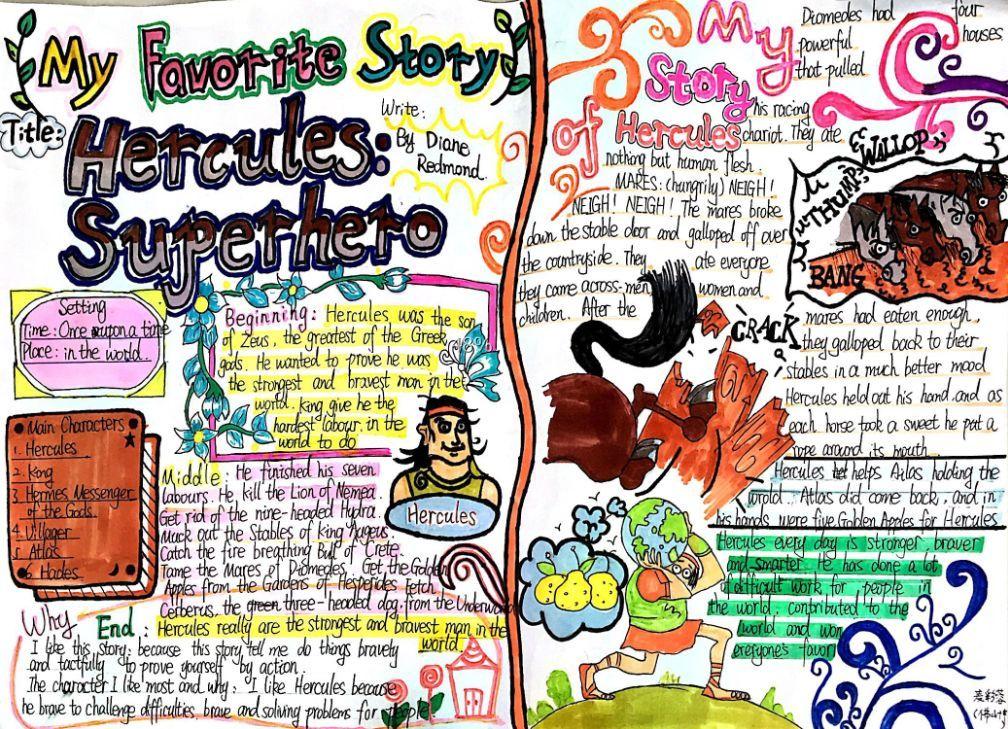 My Favorite Story
Title:
Hercules:
Superhero
Write:
By Diane
Redmond.
Setting
Time: Once upon a time
Place: in the world.
Main Characters
1. Hercules
2. King
3. Hermes Messenger
of the Gods.
4. Villager
5. Atlas
6. Hades
Beginning: Hercules was the son
of Zeus, the greatest of the Greek
gods. He wanted to prove he was
the strongest and bravest man in the
world. King give he the
hardest labour in the
world to do
Hercules
Middle: He finished his seven
labours. He kill the Lion of Nemea.
Get rid of the nine-headed Hydra.
Muck out the Stables of King Augeus.
Catch the fire breathing Bull of Crete.
Tame the Mares of Diomedes. Get the Golden
Apples from the Gardens of Hesperides Fetch
Cerberus, the green three-headed dog from the Underworld
End: Hercules really are the strongest and bravest man in the
world.
Why
I like this story: because this story tell me do things bravely
and tactfully to prove yourself by action.
The character I like most and why: I like Hercules because
he brave to challenge difficulties, brave and solving problems for people.
My
Story
of Hercules
Diomedes had four
powerful houses
that pulled
his racing
chariot. They ate
nothing but human flesh.
MARES: (hungrily) NEIGH!
NEIGH! NEIGH! The mares broke
down the stable door and galloped off over
the countryside. They ate everyone
they came across-men women and
children. After the
WALLOP
THUMP
BANG
CRACK
mares had eaten enough,
they galloped back to their
stables in a much better mood
Hercules held out his hand and as
each horse took a sweet he put a
rope around its mouth
Hercules helps Atlas holding the
world. Atlas did come back, and in
his hands were five Golden Apples for Hercules
Hercules every day is stronger, braver
and smarter. He has done a lot
of difficult work for people in
the world, contributed to the
world and won
everyone's favor